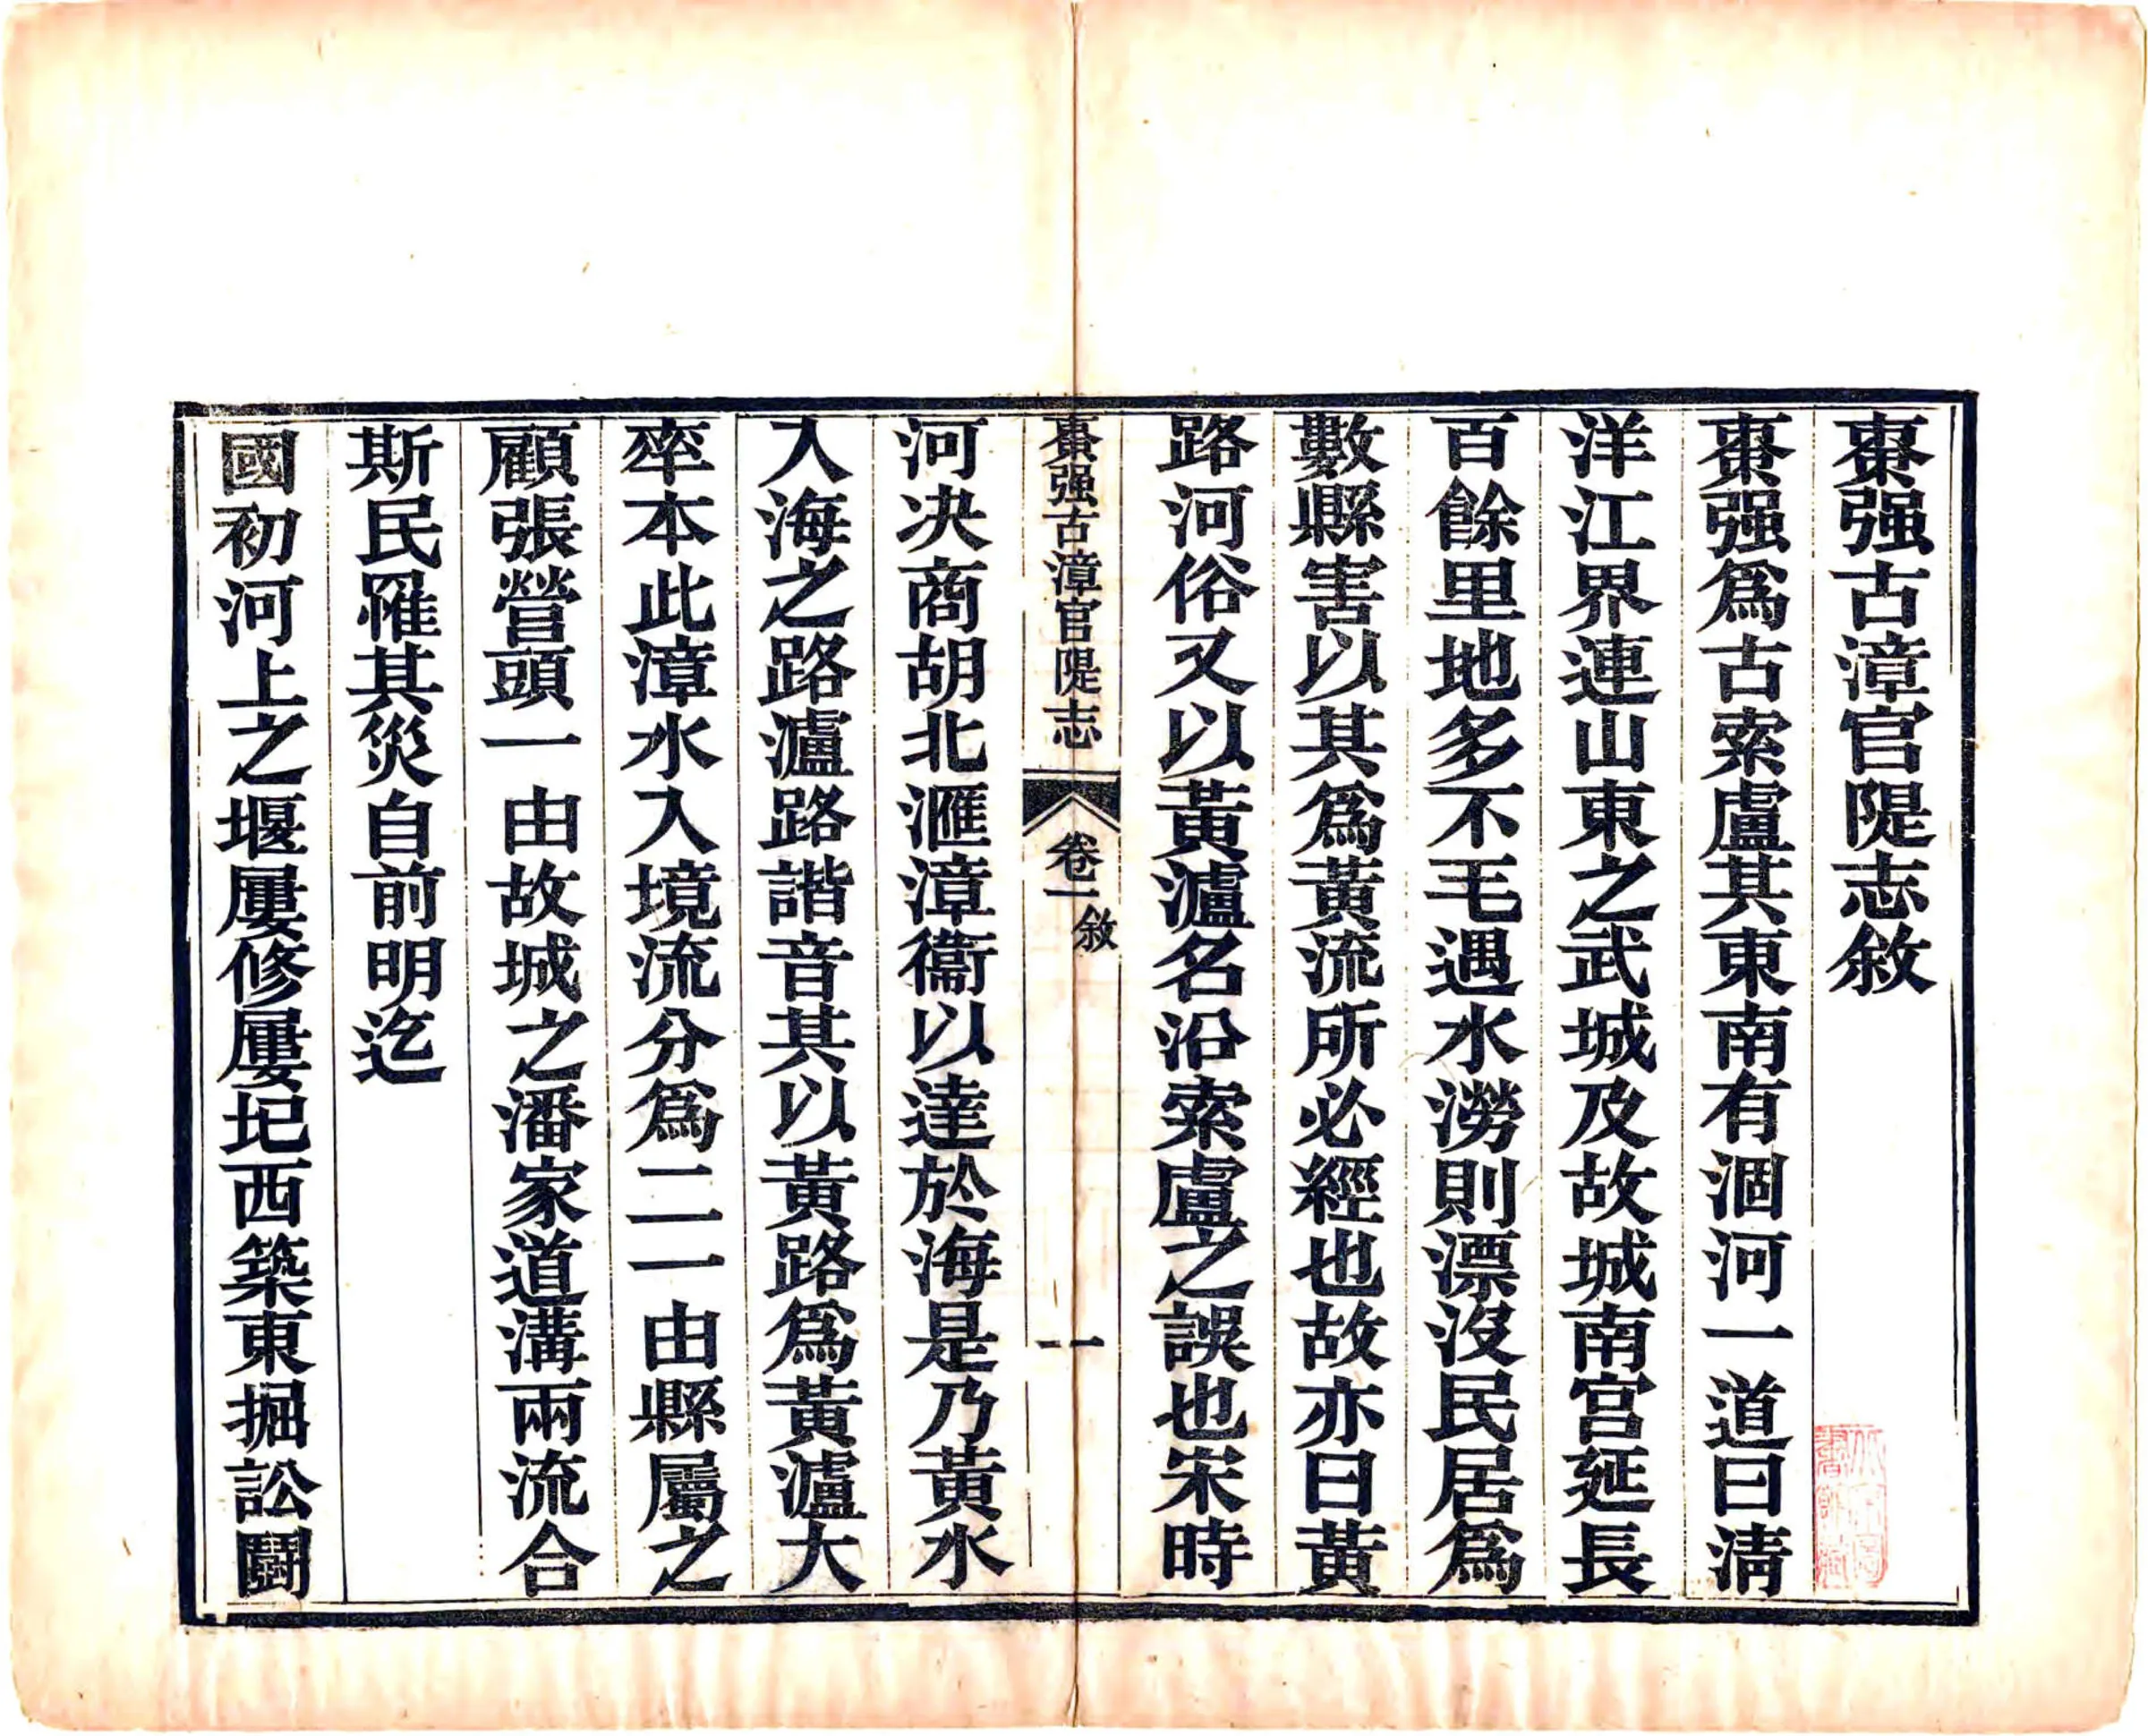 棗强古漳官隄志敘
棗强爲古索盧其東南有涸河一道曰淸
洋江界連山東之武城及故城南宫延長
百餘里地多不毛遇水澇則漂沒民居爲
數縣害以其爲黃流所必經也故亦曰黃
路河俗又以黃瀘名沿索盧之誤也宋時
棗强古漳官隄志
卷一
敘
一
河决商胡北滙漳衞以達於海是乃黃水
入海之路瀘路諧音其以黃路爲黃瀘大
率本此漳水入境流分爲二一由縣屬之
顧張營頭一由故城之潘家道溝兩流合
斯民罹其災自前明迄
國初河上之堰屢修屢圮西築東掘訟鬭